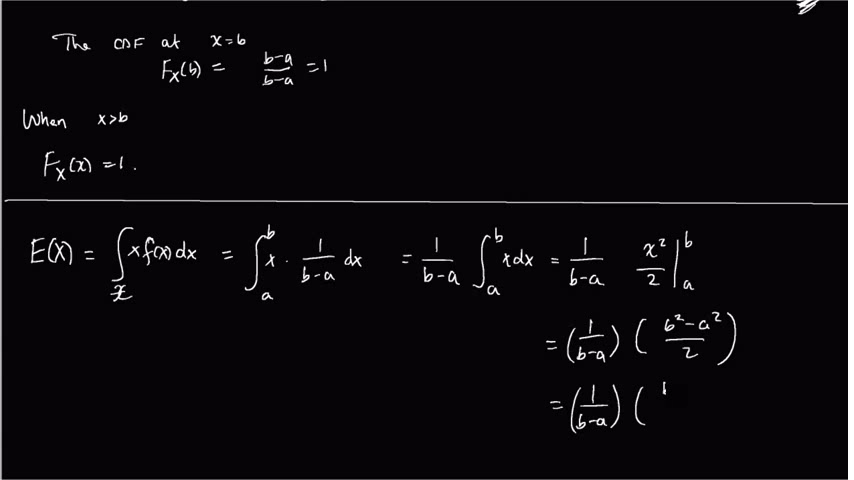 The CDF at x=b
F_X(b) = \frac{b-a}{b-a} = 1
When x>b
F_X(x) = 1.
E(X) = \int_{\mathcal{X}} x f(x) dx = \int_a^b x \cdot \frac{1}{b-a} dx = \frac{1}{b-a} \int_a^b x dx = \frac{1}{b-a} \frac{x^2}{2} |_a^b
= (\frac{1}{b-a}) (\frac{b^2-a^2}{2})
= (\frac{1}{b-a}) (